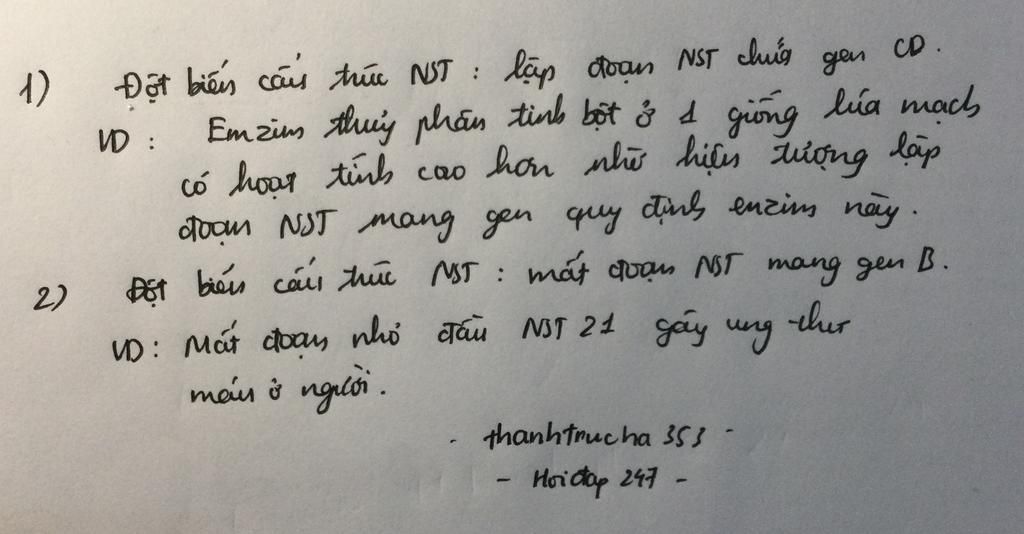 1) Đột biến cấu trúc NST : lặp đoạn NST chứa gen CD.
VD : Enzim thuỷ phân tinh bột ở 1 giống lúa mạch
có hoạt tính cao hơn nhờ hiện tượng lặp
đoạn NST mang gen quy định enzim này.
2) Đột biến cấu trúc NST : mất đoạn NST mang gen B.
VD : Mất đoạn nhỏ đầu NST 21 gây ung thư
máu ở người.
- thanhtrucha 353 -
- Hoidap 247 -